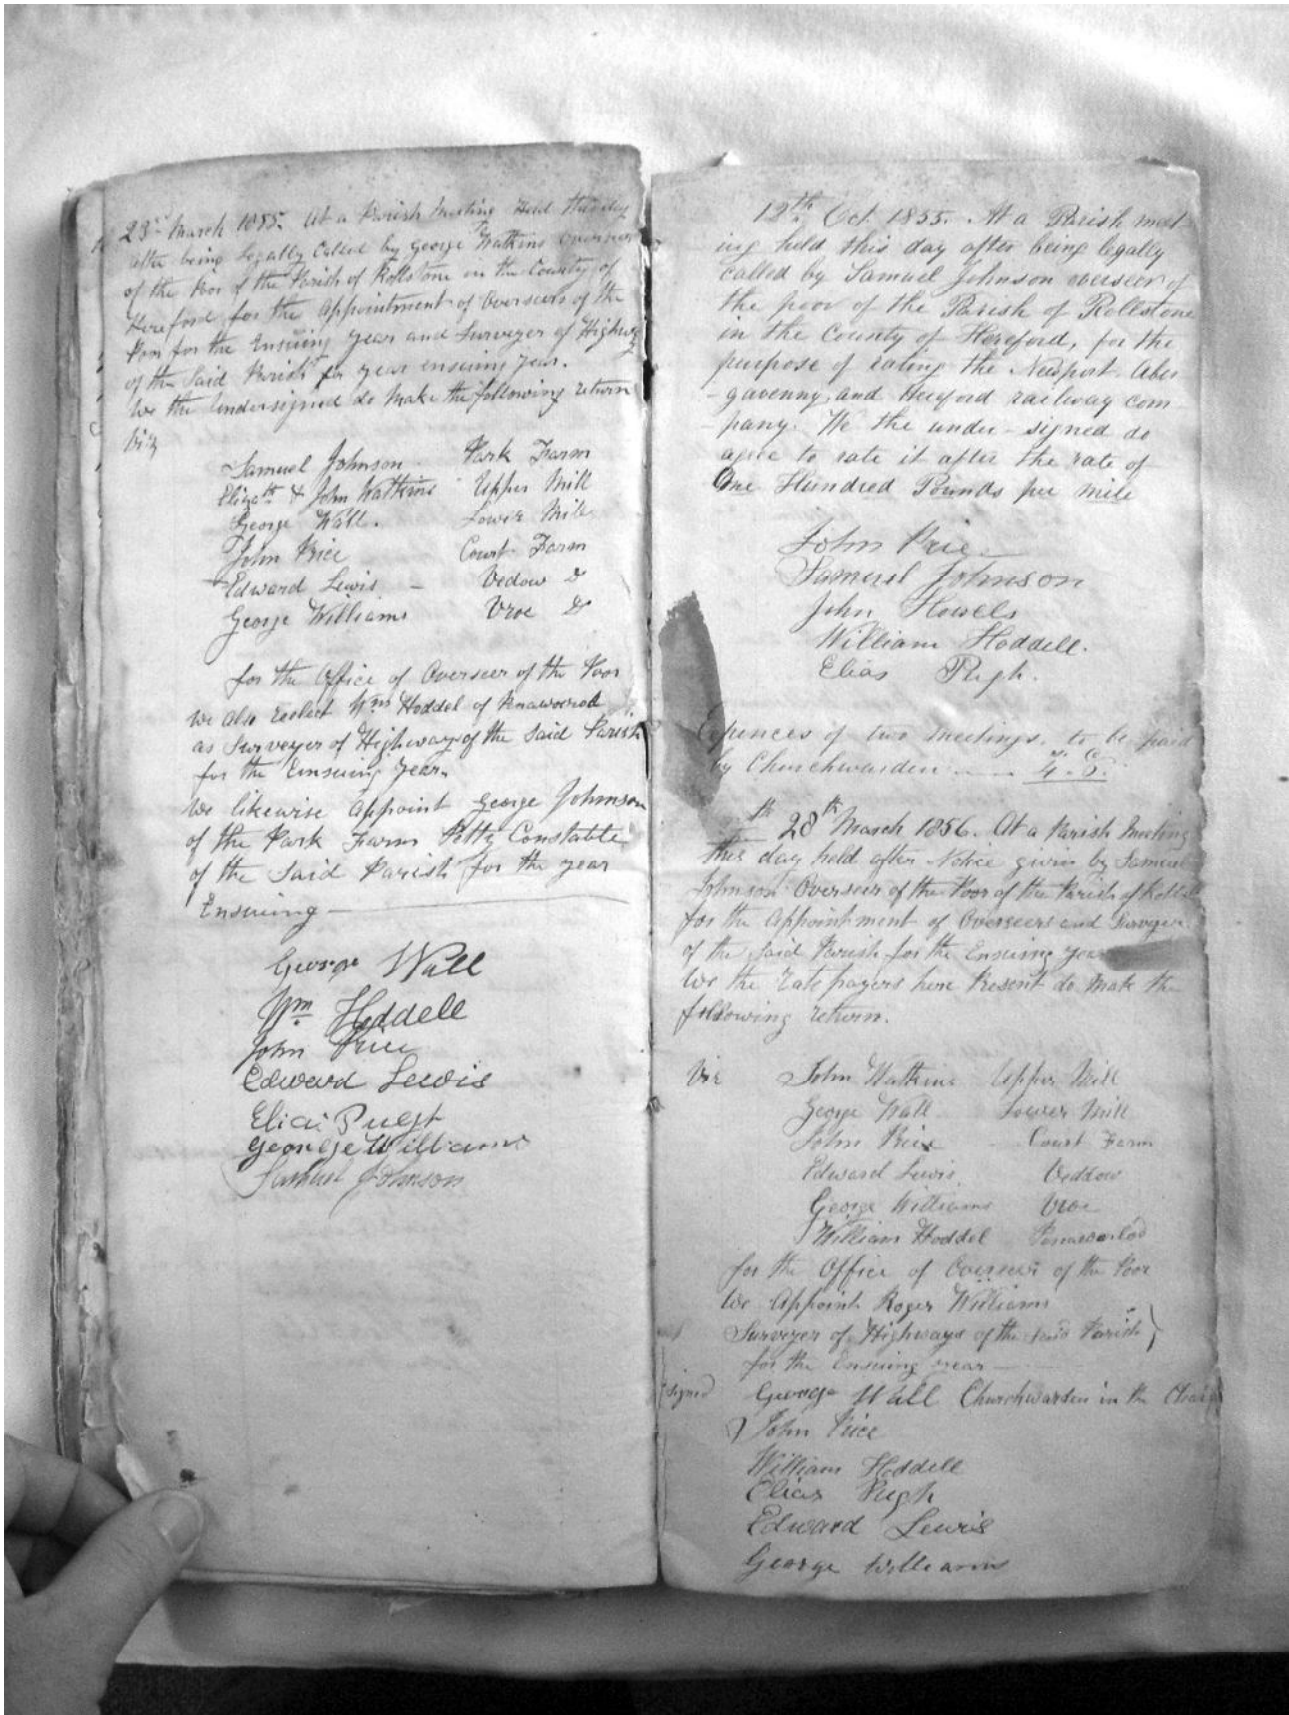 23rd March 1855. At a Parish Meeting Held this day
after being Legally Called by George Watkins Overseer
of the Poor of the Parish of Rollstone in the County of
Hereford for the Appointment of Overseers of the
Poor for the Ensuing year and Surveyor of Highways
of the Said Parish for year ensuing year.
We the Undersigned do Make the following return
Viz
Samuel Johnson Park Farm
Elizath & John Watkins Upper Mill
George Wall. Lower Mill
John Price Court Farm
Edward Lewis - Vedow Do
George Williams Vroe Do
for the Office of Overseer of the Poor
We also reelect Wm Hoddel of
as Surveyor of Highways of the Said Parish
for the Ensuing Year.
We likewise Appoint George Johnson
of the Park Farm Petty Constable
of the Said Parish for the year
Ensuing
George Wall
Wm Hoddell
John Price
Edward Lewis
Elias Pugh
George Williams
Samuel Johnson
12th Oct. 1855. At a Parish meet
ing held this day after being legally
called by Samuel Johnson overseer of
the poor of the Parish of Rollstone
in the County of Hereford, for the
purpose of rating the Newport Aber
-gavenny, and Hereford railway com
-pany. We the under-signed do
agree to rate it after the rate of
One Hundred Pounds per mile
John Price
Samuel Johnson
John Howells
William Hoddell.
Elias Pugh.
Expences of two Meetings. to be paid
by Churchwarden 4. 6.
th 28th March 1856. At a Parish Meeting
this day held after Notice given by Samuel
Johnson Overseer of the Poor of the Parish of
for the Appointment of Overseers and Surveyor
of the Said Parish for the Ensuing Year
We the Ratepayers here Present do Make the
following return.
Viz John Watkins Upper Mill
George Wall Lower Mill
John Price Court Farm
Edward Lewis Veddow
George Williams Vroe
William Hoddel
for the Office of Overseers of the Poor
We Appoint Roger Williams
Surveyor of Highways of the Said Parish
for the Ensuing year
(signed George Wall Churchwarden in the Chair
John Price
William Hoddell
Elias Pugh
Edward Lewis
George Williams